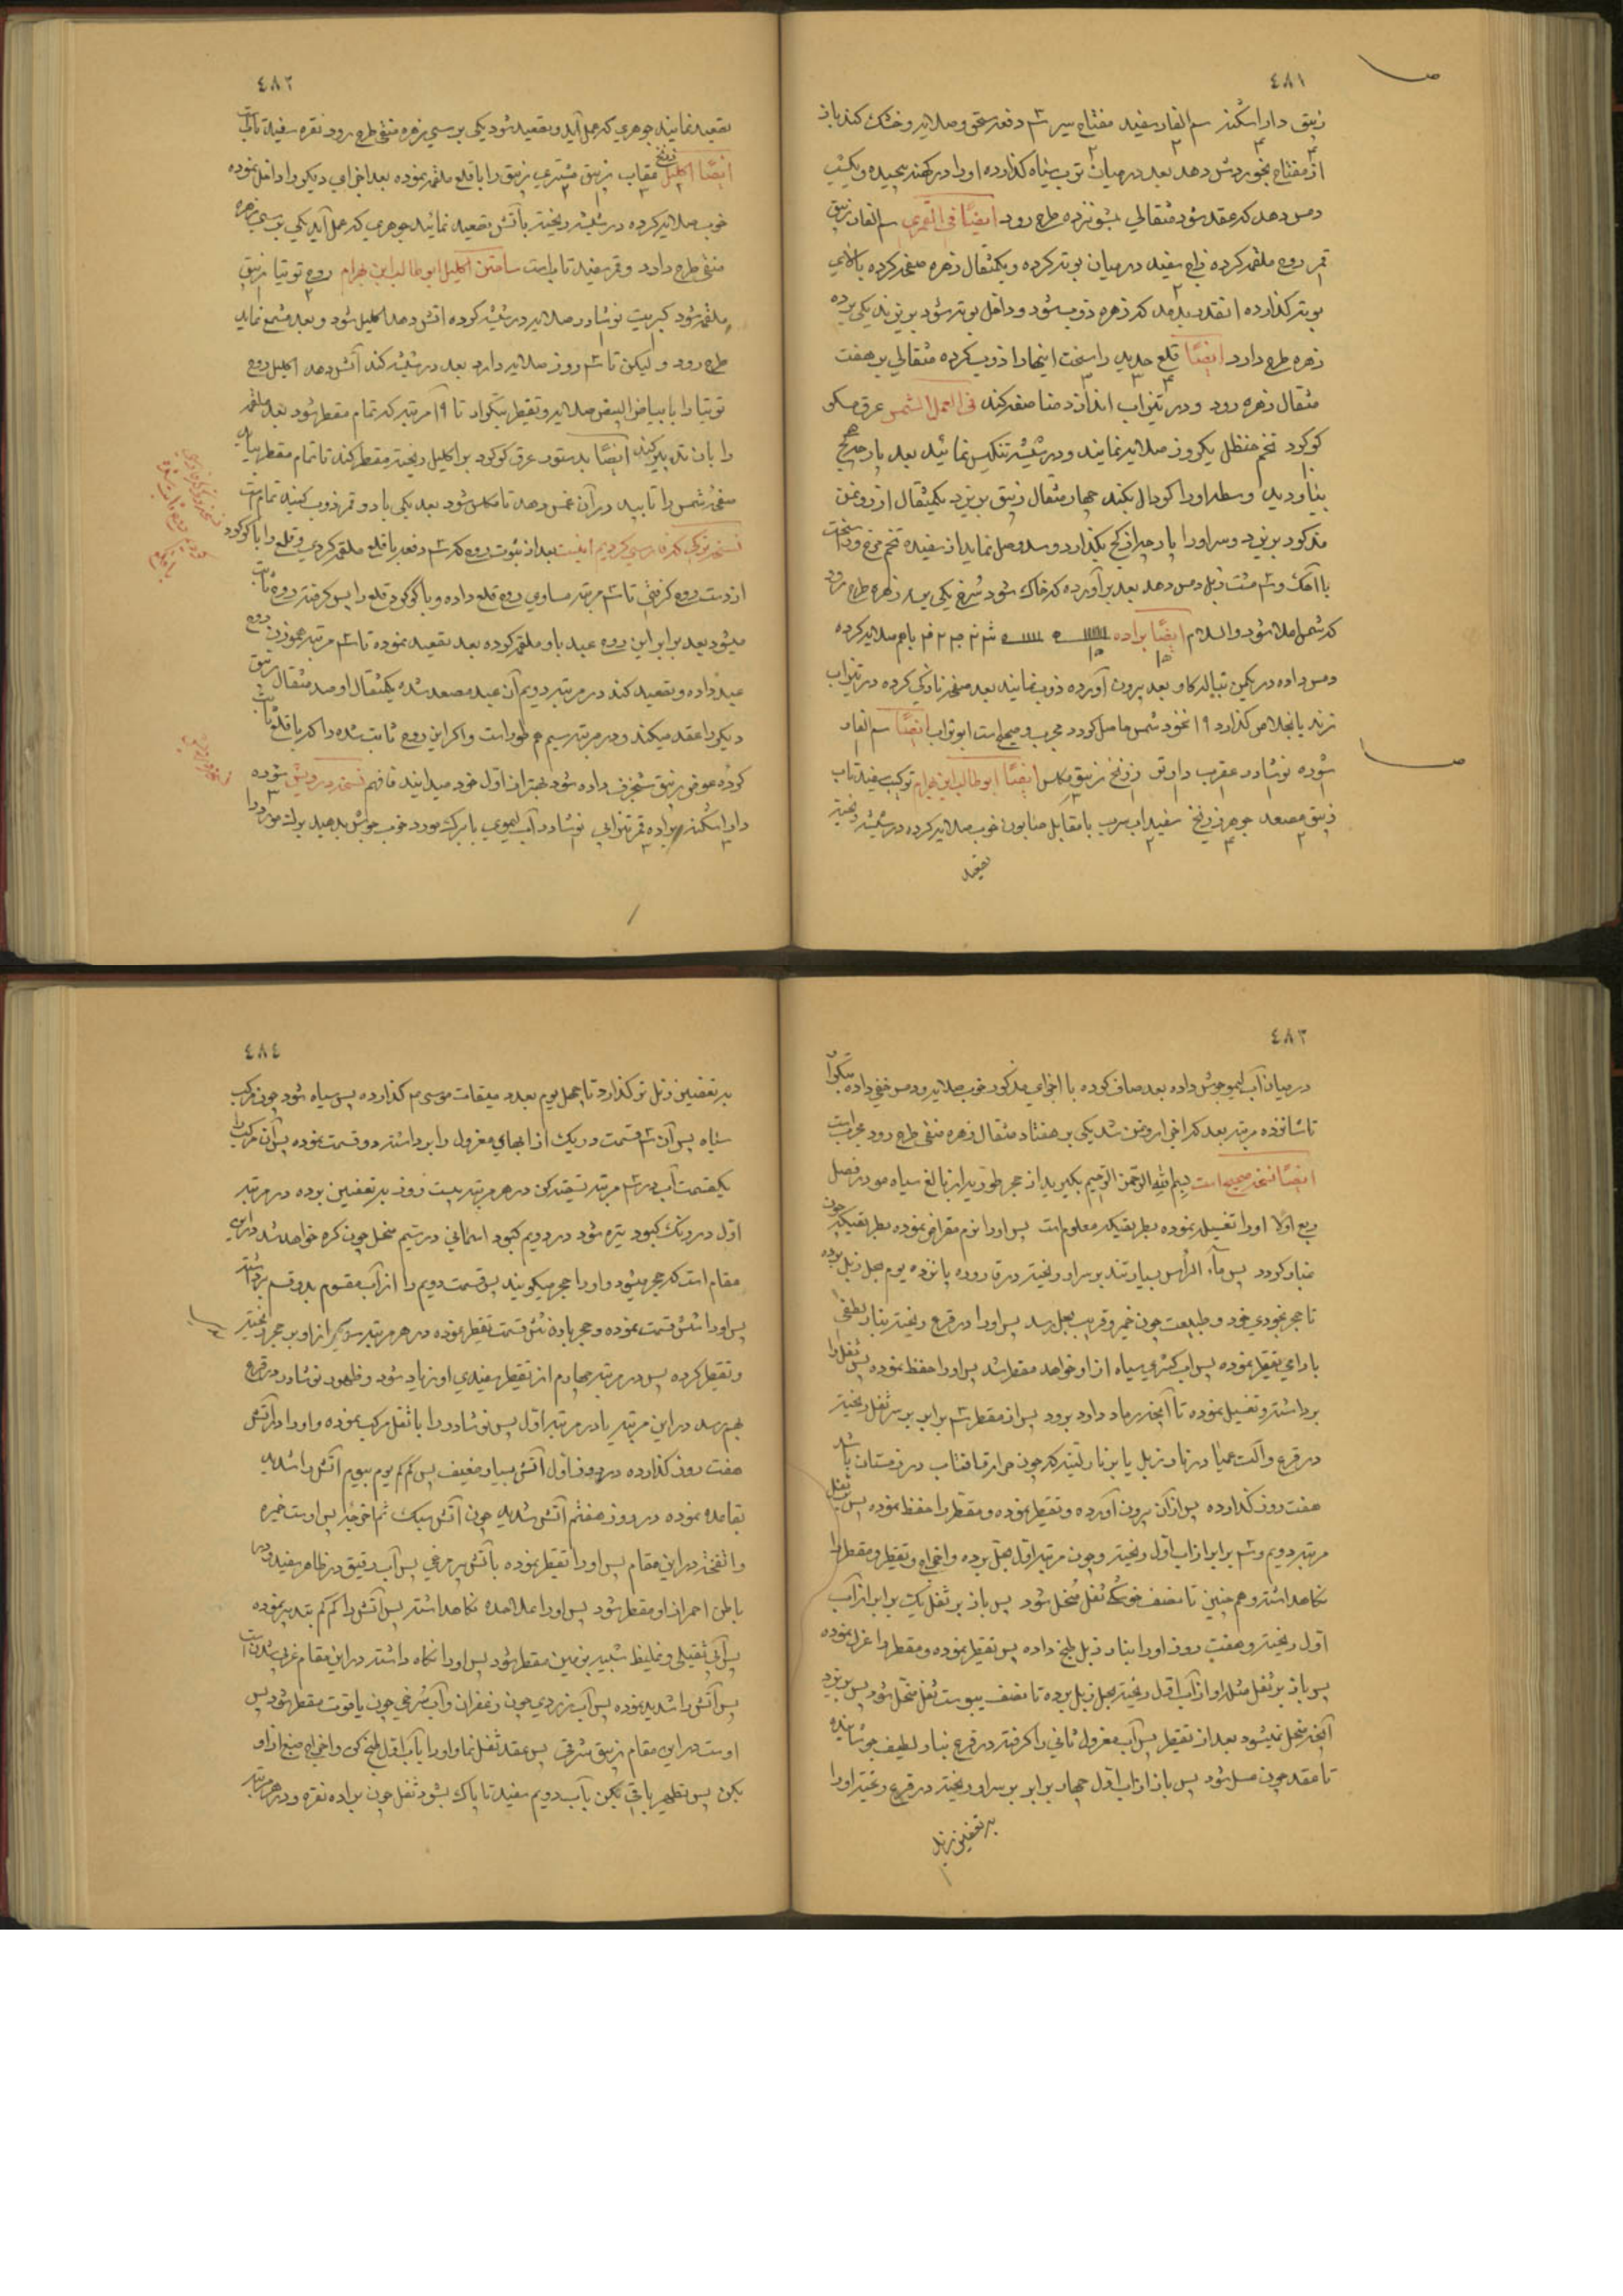 ٤٨١
زیبق داراشکنه سم الفار سفید مفتاح سیر ۳ دفعه سحق و صلایه و خشک کند باز
از مفتاح بخوردش دهد بعد در میان توب سیاه کذارده او را در کهنه پیچیده و یکشب
دمس دهد که عقد شود مثقالی بشونزده طرح رود ایضًا فی القمری سم الفار زیبق
قمر روح ملغمه کرده زاج سفید در میان بوته کرده و یکمثقال زهره صفحه کرده بالای
بوته کذارده انقدر بدمد که زهره ذوب شود و داخل بوته شود بریزند یکی بر ده
زهره طرح دارد ایضًا قلع حدید راسخت اینها را ذوب کرده مثقالی بر هفت
مثقال زهره رود و در تیزاب اندازد صفا صفه کند فی العمل الشمس عرق
کوکرد تخم حنظل یکروز صلایه نمایند و در شیشه تنکیس نمائید بعد پارچه کج
بیاورید وسط او را کودال بکند چهار مثقال زیبق بریزد یکمثقال از روغن
مذکور بریزد و سر او را پارچه از کج بکذارد و سد وصل نماید از سفیده تخم مرغ و
با آهک و ۳ مشت زبل دمس دهد بعد برآورده که خاک شود سرخ یکی بر زهره طرح رود
که شمس اصلا شود والسلام ایضًا براده باهم صلایه کرده
دمس داده در یکمن تپاله کاو بعد برون آورده ذوب نمایند بعد صفحه نازکی کرده در تیزاب
زند یا بخلاص کذارد ۱۹ نخود شمس حاصل کردد مجرب و صحیح است ابوتراب ایضًا سم الفار
شوره نوشادر عقرب زرنخ زیبق مکلس ایضًا ابوطالب ابن بهرام ترکیب سفید تاب
زیبق مصعد جوهر زرنخ سفید اب سرب با مقابل صابون خوب صلایه کرده در شیشه ریخته
تصعید
٤٨٢
تصعید نمایند جوهری که بعمل آید و تصعید شود یکی بر سی زهره منقی طرح رود نقره سفید تاب است
ایضًا اکلیل عقاب زیبق مشتری زیبق را با قلع ملغمه نموده بعد اجزای دیکر را داخل نموده
خوب صلایه کرده در شیشه ریخته بآتش تصعید نمائید جوهری که عمل آید یکی بر سی زهره
منقی طرح دارد و قمر سفید تاب است ساختن اکلیل ابوطالب ابن بهرام روح توتیا زیبق
ملغمه شود کبریت نوشادر صلایه در شیشه کرده اتش دهد اکلیل شود و بعد مشمع نماید
طرح رود و لیکن تا ۳ روز صلایه دارد بعد در شیشه کند آتش دهد اکلیل روح
توتیا را با بیاض البیض صلایه و تقطیر بتکرار تا ۱۹ مرتبه که تمام مقطر شود بعد ملغمه
را بان تدبیر کند ایضًا بدستور عرق کوکرد بر اکلیل ریخته مقطر کند تا تمام مقطر بیاید
صفحه شمس را تابیده در آن غمس دهد تا مکلس شود بعد یکی با دو قمر ذوب کنید تمام است
نسخه ترکی که فارسی کردیم اینست بعد از ثبوت روح که ۳ دفعه با قلع ملغمه کردی و قلع را با کوکرد
از دست روح کرفتی تا ۳ مرتبه مساوی روح قلع داده و با کوکرد قلع را پس کرفته روح ثابت
میشود بعد برابر این روح عبد باو ملغمه کرده بعد تصعید نموده تا ۳ مرتبه هموزن روح
عبد داده و تصعید کند در مرتبه دویم آن عبد مصعد شده یکمثقال او صد مثقال زیبق
دیکر را عقد میکند و در مرتبه سیم هم طور است و اکر این روح ثابت شده را که با قلع ثابت
کرده عوض زیبق شنجرف داده شود بهتر از اول خود میدانید فافهم نسخه درویش شوره
داراشکنه براده قمر تیزابی نوشادر آب لیموی با برک مورد خوب جوش بدهید برک مورد را
٤٨٣
در میان آب لیمو جوش داده بعد صاف کرده با اجزای مذکور خوب صلایه و دمس خفی داده بتکرار
تا شانزده مرتبه بعد که اجزا روغن شد یکی بر هفتاد مثقال زهره منقی طرح رود مجرب است
ایضًا نسخه صحیحه است بسم الله الرحمن الرحیم بکیرید از حجر طوریه از بالغ سیاه مو در فصل
ربیع اولا او را تغسیل نموده بطریقیکه معلوم است پس او را نرم مقراض نموده بطریقیکه چون
غبار کردد پس ماء الرأس بسیار تند بر سر او ریخته در قاروره پانزده یوم بحل زبل بوده
تا حجر بخودی خود و طبیعت چون خمیر و قریب بحل رسد پس او را در قرع ریخته بنار لطیفی
بارامی تقطیر نموده پس اب کدری سیاه از او خواهد مقطر شد پس او را حفظ نموده پس ثفل را
برداشته و تغسیل نموده تا آنچه رماد دارد برود پس از مقطر ۳ برابر بر سر ثفل ریخته
در قرع و الت عمیا در نار زبل یا بر نار لینه که چون حرارة افتاب در زمستان باشد
هفت روز کذارده پس از آن برون آورده و تقطیر نموده و مقطر را حفظ نموده پس ثفل
مرتبه دویم و ۳ برابر از اب اول ریخته و چون مرتبه اول بحل برده و اخراج و تقطیر و مقطر را
نکاهداشته و هم چنین تا نصف خشکی ثفل منحل شود پس باز بر ثفل یک برابر از آب
اول ریخته و هفت روز او را بنار زبل طبخ داده پس تقطیر نموده و مقطر را عزل نموده
پس باز بر ثفل مثل او از آب اول ریخته بحل زبل برده تا نصف یبوست ثفل منحل شود پس بریزد
آنچه منحل نمیشود بعد از تقطیر پس آب معزول ثانی را کرفته در قرع بنار لطیف جوشانیده
تا عقد چون عسل شود پس باز از اب اول چهار برابر بر سر او ریخته در قرع ریخته او را
به تعفین زبل
٤٨٤
به تعفین زبل تر کذارد تا چهل یوم بعدد میقات موسی ع م کذارده پس سیاه شود چون مرکب
سیاه پس آن ۳ قسمت و ریک از ابهای معزول را برداشته دو قسمت نموده پس آن مرکب را
یکقسمت آب در ۳ مرتبه تسقیه کن در هر مرتبه بیست روز به تعفین بوده در مرتبه
اول در رنک کبود تیره شود در دویم کبود اسمانی در سیم منحل چون کره خواهد شد در این
مقام است که حجر میشود و او را حجر میکویند پس قسمت دویم را از آب مقسوم بدو قسم برداشته
پس او را شش قسمت نموده و حجر باده شش قسمت تقطیر نموده در هر مرتبه سدس از او بر حجر ریخته
و تقطیر کرده پس در مرتبه چهارم از تقطیر سفیدی او زیاد شود و ظهور نوشادر در قرع
بهم رسد در این مرتبه یا در مرتبه اول پس نوشادر را با ثفل مرکب نموده و او را در آتش
هفت روز کذارده در روز اول آتش بسیار ضعیف پس کم کم یوم بیوم آتش را شدید
بقاعده نموده در روز هفتم آتش شدید چون آتش سبک ثم اخرجه پس اوست خمیره
و انفحه در این مقام پس او را تقطیر نموده بآتش پر مرغی پس آب رقیق در ظاهر سفید و در
باطن احمر از او مقطر شود پس او را علاحده نکاهداشته پس آتش را کم کم بتدبیر نموده
پس آبی ثقیلی و غلیظ شبیه بزمین مقطر شود پس او را نکاه داشته در این مقام غربی شده است
پس آتش را شدید نموده پس آب زردی چون زعفران و آب سرخی چون یاقوت مقطر شود پس
اوست در این مقام زیبق شرقی پس عقد ثفل نما و او را بآب اول طبخ کن و اخراج صبغ از او
بکن پس تطهیر باقی بکن بآب دویم سفید تا پاک بشود ثفل چون براده نقره و در هر مرتبه